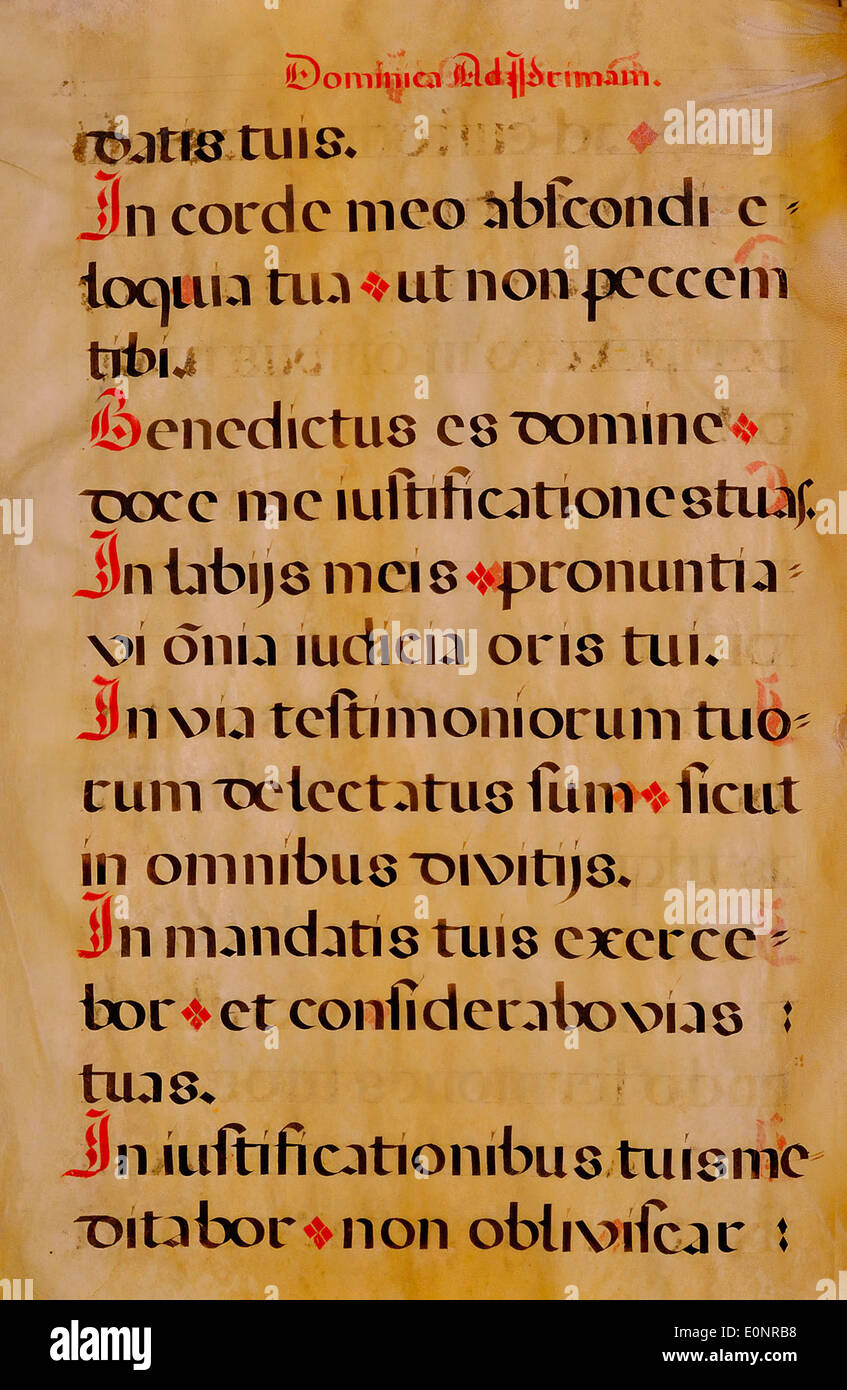 Dominica Ad Primam.
datis tuis.
In corde meo abſcondi e-
loquia tua ❖ ut non peccem
tibi.
Benedictus es domine ❖
doce me iuſtificationes tuas.
In labijs meis ❖ pronuntia-
vi o͞nia iudicia oris tui.
In via teſtimoniorum tuo-
rum delectatus ſum ❖ ſicut
in omnibus divitijs.
In mandatis tuis exerce-
bor ❖ et conſiderabo vias :
tuas.
In iuſtificationibus tuis me-
ditabor ❖ non obliviſcar :
alamy
a
alamy stock photo
E0NRB8
www.alamy.com